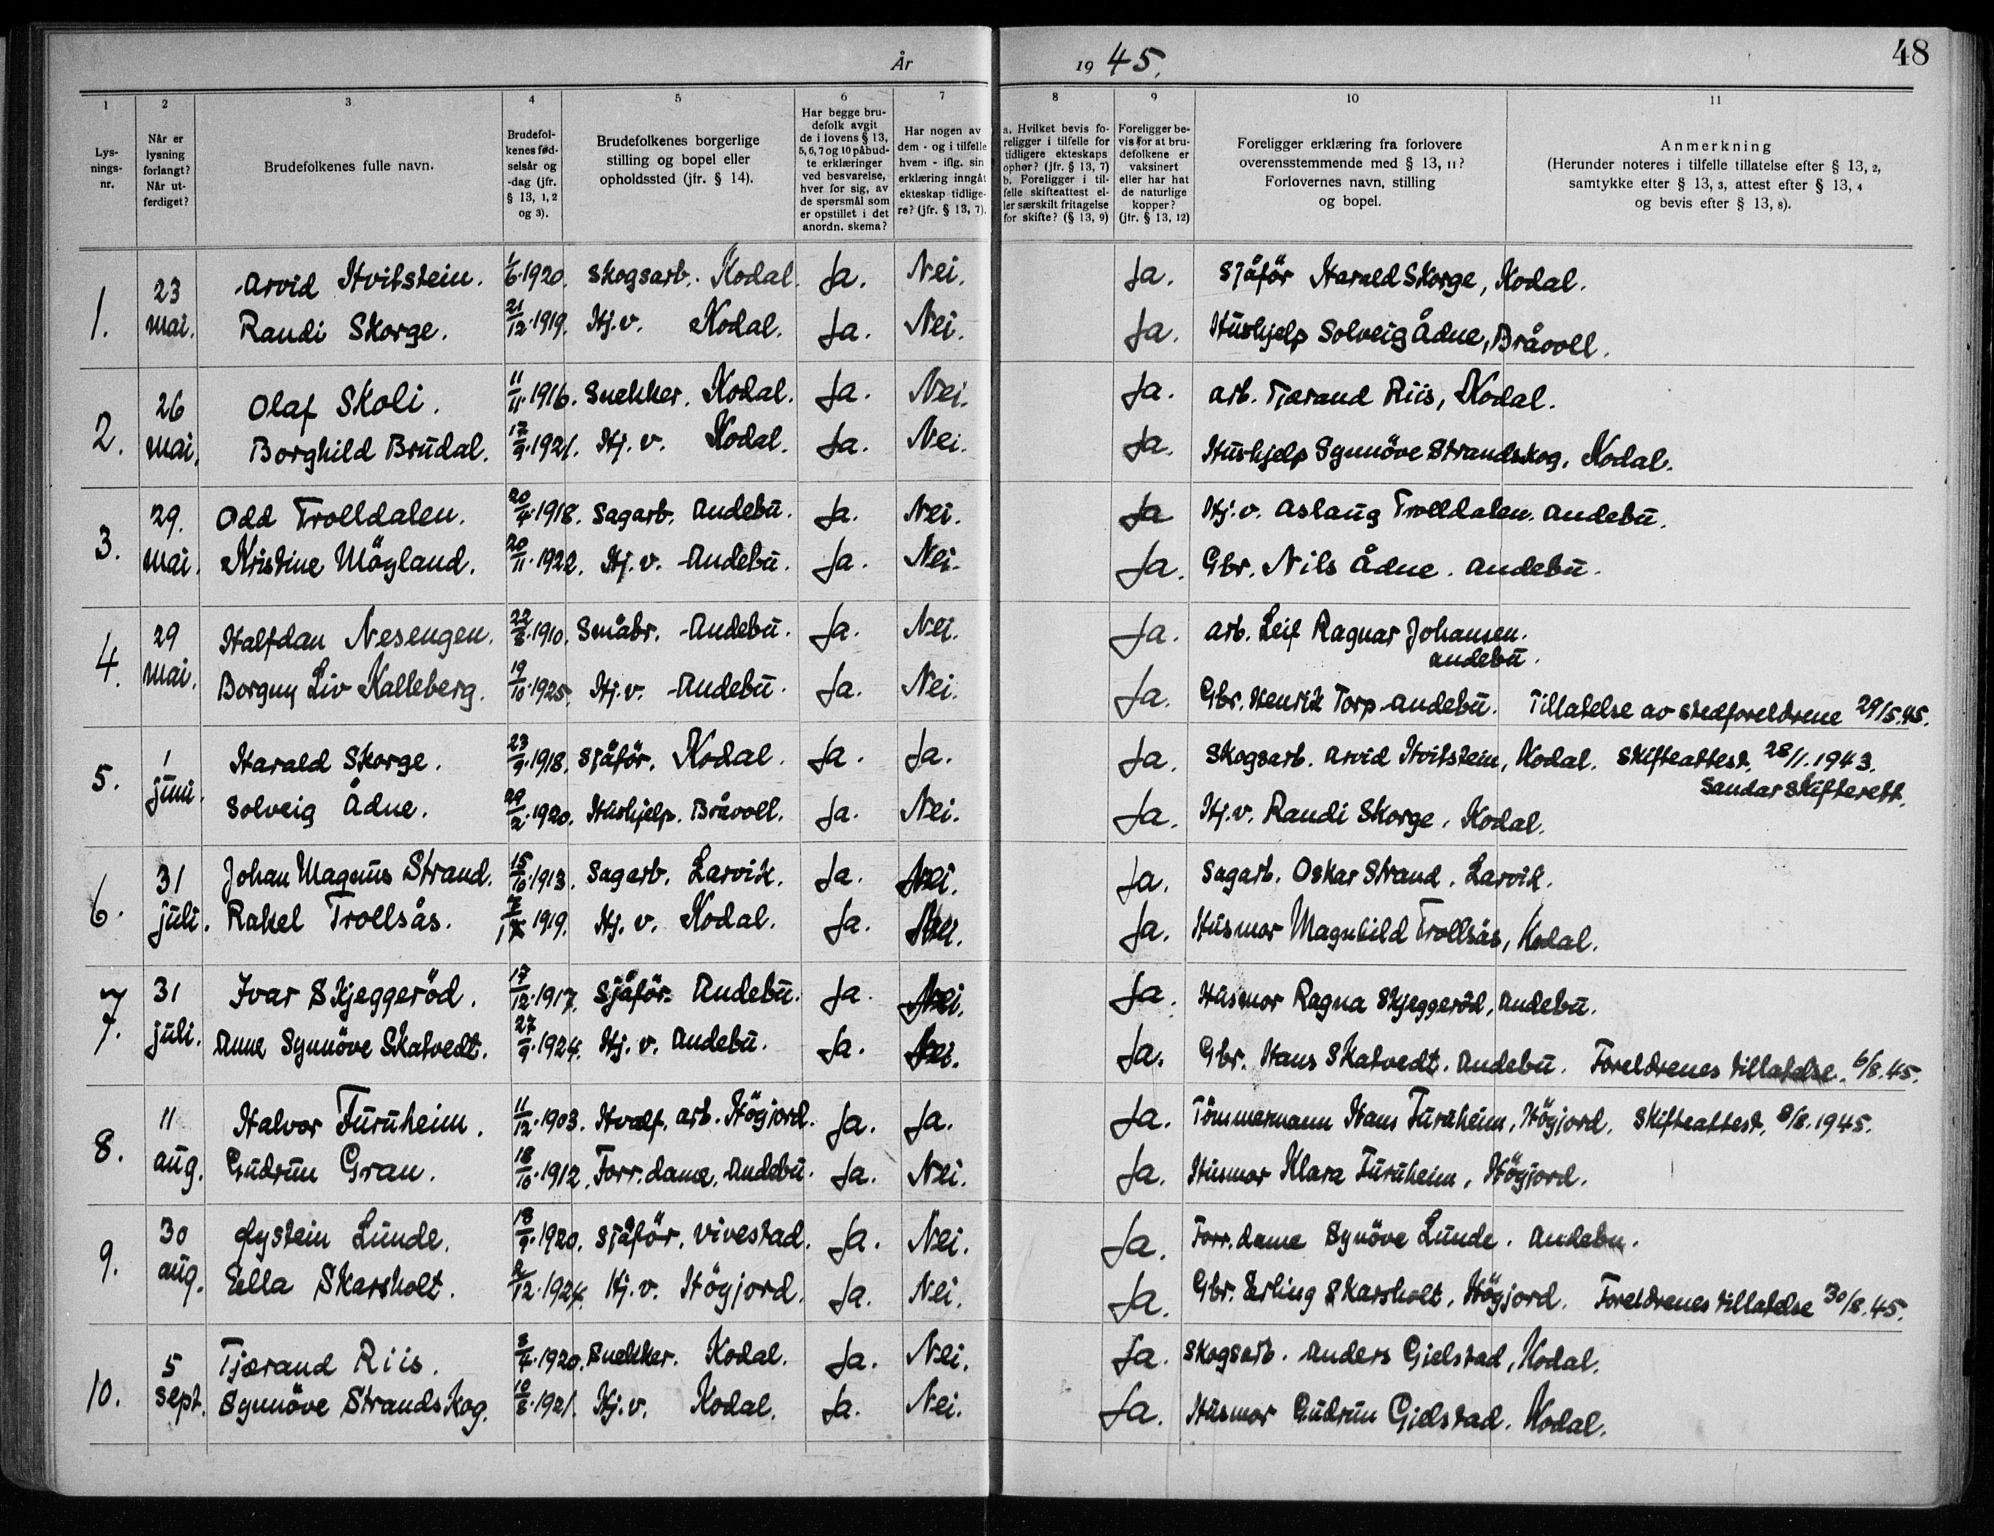 År 1945.
48
1 2 3 4 5 6 7 8 9 10 11
Lys-
nings-
nr.
Når er
lysning
forlangt?
Når ut-
ferdiget?
Brudefolkenes fulle navn.
Brudefol-
kenes fød-
selsår og
-dag (jfr.
§ 13, 1, 2
og 3).
Brudefolkenes borgerlige
stilling og bopel eller
opholdssted (jfr. § 14).
Har begge bru-
defolk avgit
de i lovens § 13,
5, 6, 7 og 10 påbud-
te erklæringer
ved besvarelse,
hver for sig, av
de spørsmål som
er opstillet i det
anordn. skema?
Har nogen av
dem - og i tilfelle
hvem - iflg. sin
erklæring inngåt
ekteskap tidlige-
re? (jfr. § 13, 7).
a. Hvilket bevis fo-
religger i tilfelle for
tidligere ekteskaps
ophør? (jfr. § 13, 7)
b. Foreligger i til-
felle skifteattest el-
ler særskilt fritagelse
for skifte? (§ 13, 9)
Foreligger be-
vis for at bru-
defolkene er
vaksinert
eller har hat
de naturlige
kopper?
(jfr. § 13, 12)
Foreligger erklæring fra forlovere
overensstemmende med § 13, 11?
Forlovernes navn, stilling
og bopel.
Anmerkning
(Herunder noteres i tilfelle tillatelse efter § 13, 2,
samtykke efter § 13, 3, attest efter § 13, 4
og bevis efter § 13, 8).
1. 23 mai. Arvid Hvitstein. 1/6.1920. Skogsarb. Kodal. Ja. Nei. Ja. Sjåför Harald Skorge, Kodal.
Randi Skorge. 21/12.1919. Hj.v. Kodal. Ja. Nei. Ja. Hushjelp Solveig Ådne, Bråvoll.
2. 26 mai. Olaf Skoli. 11/11.1916. Snekker. Kodal. Ja. Nei. Ja. Arb. Tjærand Riis, Kodal.
Borghild Brudal. 17/9.1921. Hj.v. Kodal. Ja. Nei. Ja. Hushjelp Synnöve Strandskog, Kodal.
3. 29. mai. Odd Trolldalen. 20/4.1918. Sagarb. Andebu. Ja. Nei. Ja Hj.v. Aslaug Trolldalen. Andebu.
Kristine Mögland. 20/11.1922. Hj.v. Andebu. Ja. Nei. Ja. Gbr. Nils Ådne. Andebu.
4. 29 mai. Halfdan Nesengen. 22/8.1910. Småbr. Andebu. Ja. Nei. Ja. Arb. Leif Ragnar Johansen.
Andebu.
Borgny Liv Kalleberg. 19/10.1925. Hj.v. Andebu. Ja. Nei. Ja. Gbr. Henrik Torp Andebu. Tillatelse av stedforeldrene 29/5.45.
5. 1 juni. Harald Skorge. 23/9.1918. Sjåför. Kodal. Ja. Ja. Ja. Skogsarb. Arvid Hvitstein, Kodal. Skifteattest. 28/1.1943.
Sandar Skifterett.
Solveig Ådne. 29/2.1920. Hushjelp. Bråvoll. Ja. Nei. Ja. Hj.v. Randi Skorge. Kodal.
6. 31 juli. Johan Magnus Strand. 15/10.1913. Sagarb. Larvik. Ja. Nei. Ja. Sagarb. Oskar Strand. Larvik.
Rakel Trollsås. 1919. Hj.v. Kodal. Ja. Nei. Ja. Husmor Magnhild Trollsås, Kodal.
7. 31 juli. Ivar Skjeggeröd. 17/12.1917. Sjåför. Andebu. Ja. Nei. Ja. Husmor Ragna Skjeggeröd, Andebu.
Anne Synnöve Skatvedt. 27/9.1924. Hj.v. Andebu. Ja. Nei. Ja. Gbr. Hans Skatvedt. Andebu. Foreldrenes tillatelse. 6/8.45.
8. 11 aug. Halvor Furuheim. 11/12.1903. Hvalf. arb. Högjord. Ja. Ja. Ja. Tömmermann Hans Furuheim, Högjord. Skifteattest. 8/8.1945.
Gudrun Gran. 18/10.1912. Forr.dame. Andebu. Ja. Nei. Ja. Husmor Klara Furuheim, Högjord.
9. 30 aug. Øystein Lunde. 18/9.1920. Sjåför. Vivestad. Ja. Nei. Ja. Forr.dame Synöve Lunde. Andebu.
Ella Skarsholt. 2/12.1924. Hj.v. Högjord. Ja. Nei. Ja. Gbr. Erling Skarsholt. Högjord. Foreldrenes tillatelse 30/8.45.
10. 5 sept. Tjærand Riis. 1920. Snekker. Kodal. Ja. Nei. Ja. Skogsarb. Anders Gjelstad, Kodal.
Synnöve Strandskog. 10/8.1921. Hj.v. Kodal. Ja. Nei. Ja. Husmor Gudrun Gjelstad. Kodal.